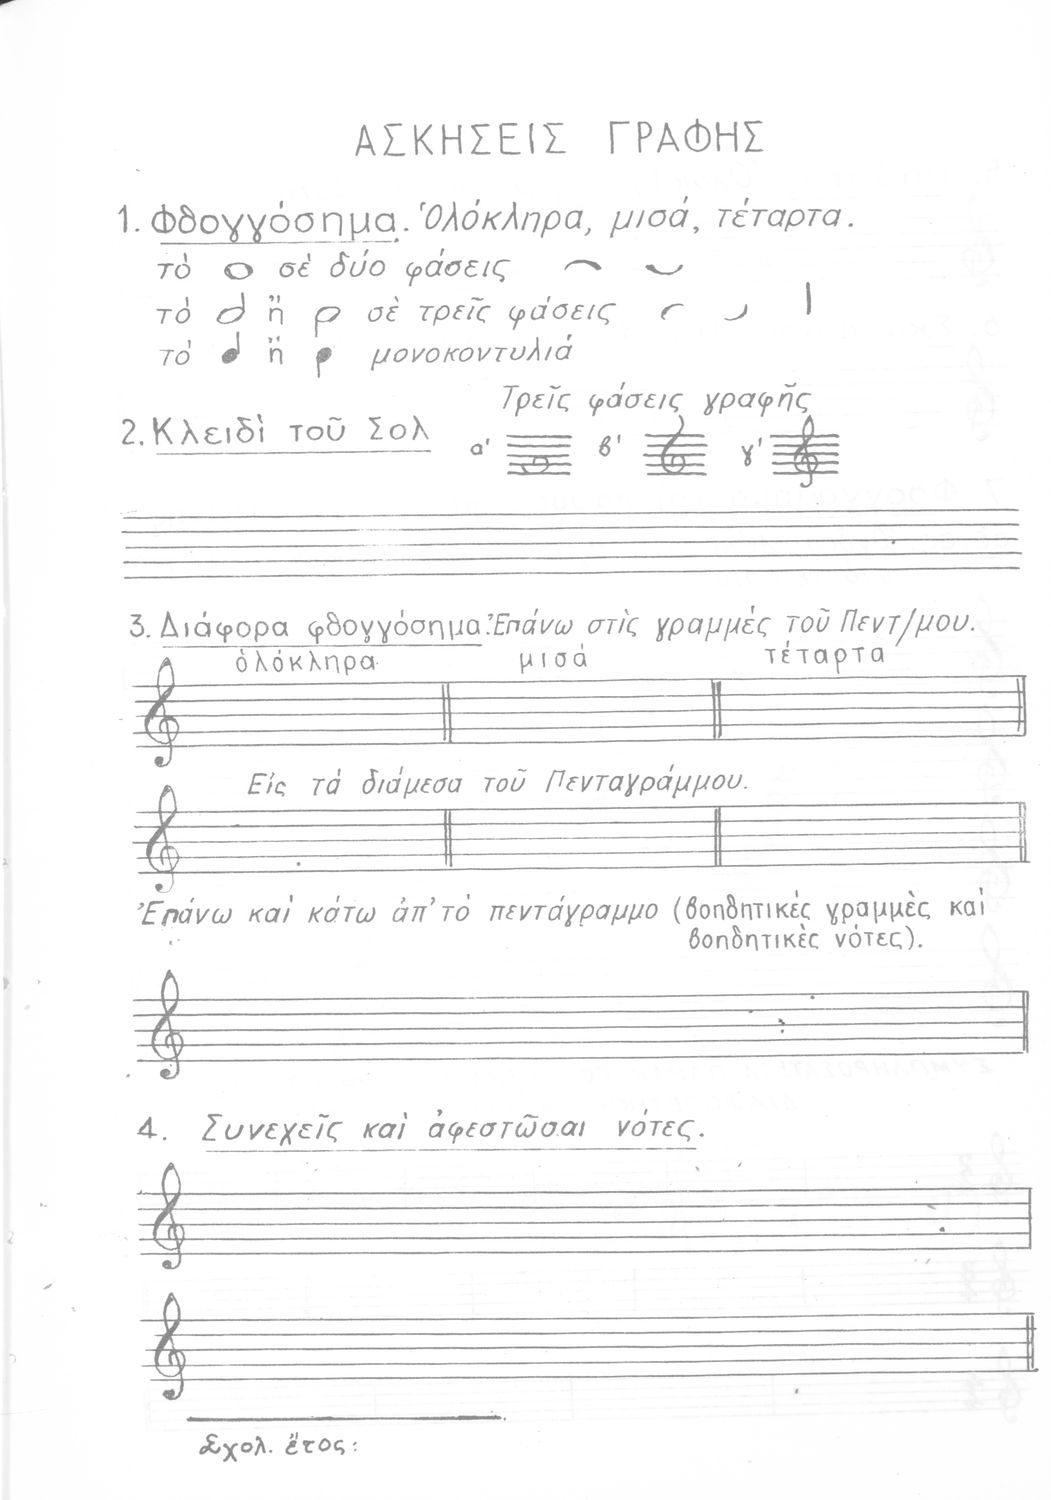 ΑΣΚΗΣΕΙΣ ΓΡΑΦΗΣ
1. Φθογγόσημα. Ὁλόκληρα, μισά, τέταρτα.
τὸ σὲ δύο φάσεις
τὸ ἢ σὲ τρεῖς φάσεις
τὸ ἢ μονοκοντυλιά
Τρεῖς φάσεις γραφῆς
2. Κλειδὶ τοῦ Σολ α' β' γ'
3. Διάφορα φθογγόσημα: Ἐπάνω στὶς γραμμὲς τοῦ Πεντ/μου.
ὁλόκληρα μισά τέταρτα
Εἰς τά διάμεσα τοῦ Πενταγράμμου.
Ἐπάνω καὶ κάτω ἀπ' τὸ πεντάγραμμο (βοηθητικὲς γραμμὲς καὶ
βοηθητικὲς νότες).
4. Συνεχεῖς καὶ ἀφεστῶσαι νότες.
Σχολ. ἔτος: